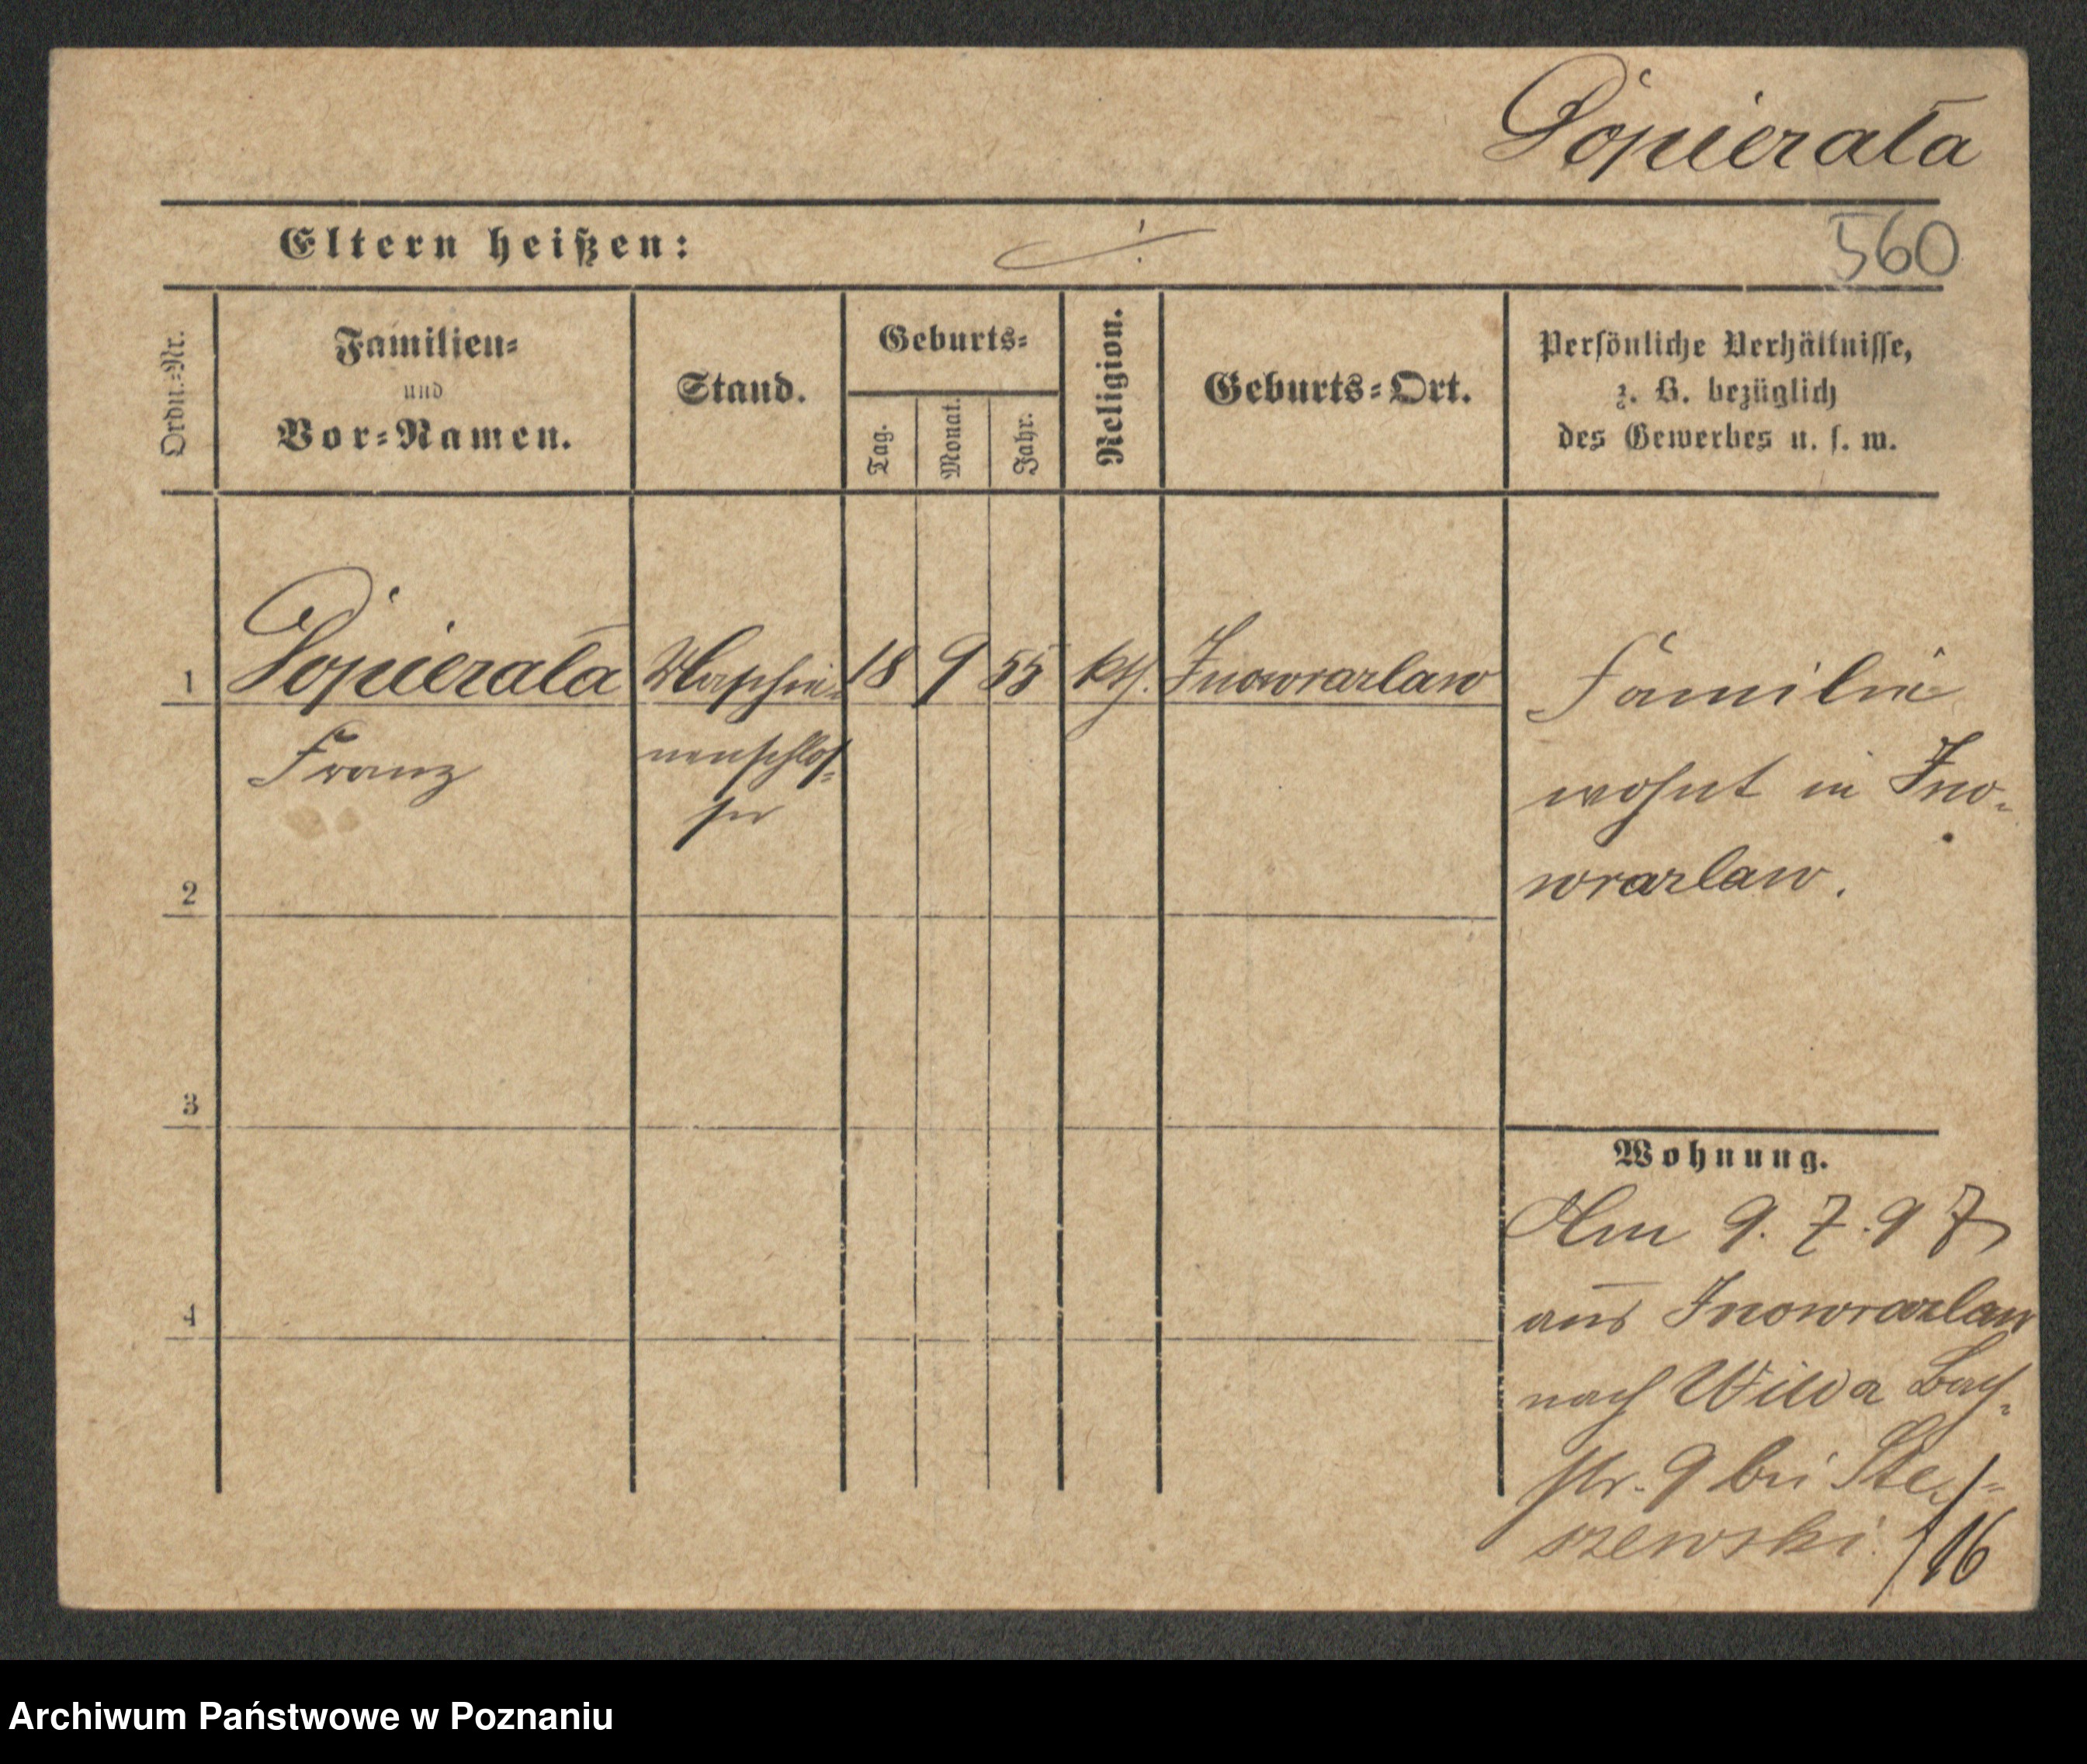 Popierata
Eltern heißen:
560
Ordn.-Nr.
Familien-
und
Vor-Namen.
Stand.
Geburts-
Tag.
Monat.
Jahr.
Religion.
Geburts-Ort.
Persönliche Verhältnisse,
z. B. bezüglich
des Gewerbes u. s. w.
1 Popierata Maschi- 18 9 55 kth. Inowrazlaw
Franz
nenschlos-
ser
Familie
wohnt in Ino-
wrazlaw.
2
3
4
Wohnung.
Am 9. 7. 97
aus Inowrazlaw
nach Wilda Bach-
str. 9 bei Ste-
szewski.
/16
Archiwum Państwowe w Poznaniu